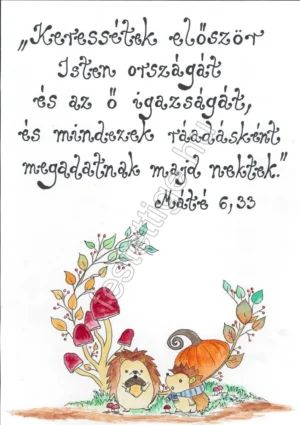 „Keressétek először
Isten országát
és az ő igazságát,
és mindezek ráadásként
megadatnak majd nektek."
Máté 6,33